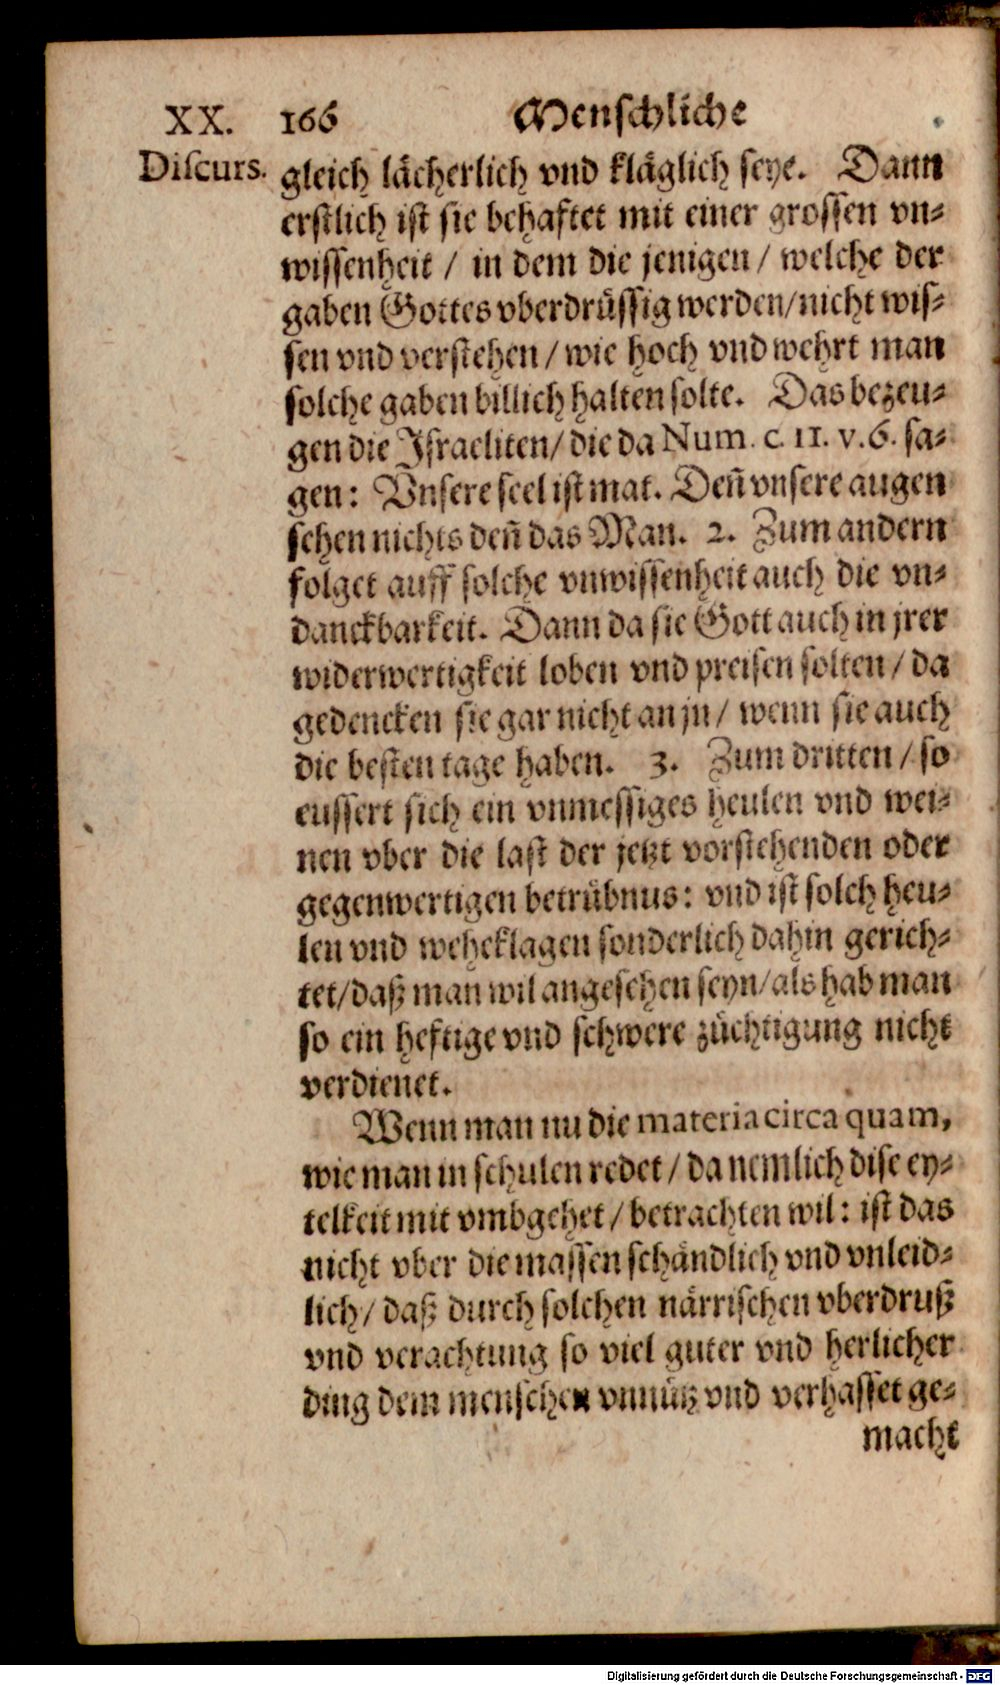 XX. 166 Menschliche
Discurs. gleich lächerlich vnd kläglich seye. Dann
erstlich ist sie behaftet mit einer grossen vn-
wissenheit / in dem die jenigen / welche der
gaben Gottes vberdrüssig werden/nicht wis-
sen vnd verstehen / wie hoch vnd wehrt man
solche gaben billich halten solte. Das bezeu-
gen die Israeliten/ die da Num. c. 11. v. 6. sa-
gen: Vnsere seel ist mat. Deñ vnsere augen
sehen nichts deñ das Man. 2. Zum andern
folget auff solche vnwissenheit auch die vn-
danckbarkeit. Dann da sie Gott auch in jrer
widerwertigkeit loben vnd preisen solten / da
gedencken sie gar nicht an jn / wenn sie auch
die besten tage haben. 3. Zum dritten / so
eussert sich ein vnmessiges heulen vnd wei-
nen vber die last der jetzt vorstehenden oder
gegenwertigen betrübnus: vnd ist solch heu-
len vnd weheklagen sonderlich dahin gerich-
tet/daß man wil angesehen seyn/als hab man
so ein heftige vnd schwere züchtigung nicht
verdienet.
Wenn man nu die materia circa quam,
wie man in schulen redet / da nemlich dise ey-
telkeit mit vmbgehet / betrachten wil: ist das
nicht vber die massen schändlich vnd vnleid-
lich/ daß durch solchen närrischen vberdruß
vnd verachtung so viel guter vnd herlicher
ding dem menschen vnnütz vnd verhasset ge-
macht
Digitalisierung gefördert durch die Deutsche Forschungsgemeinschaft - DFG